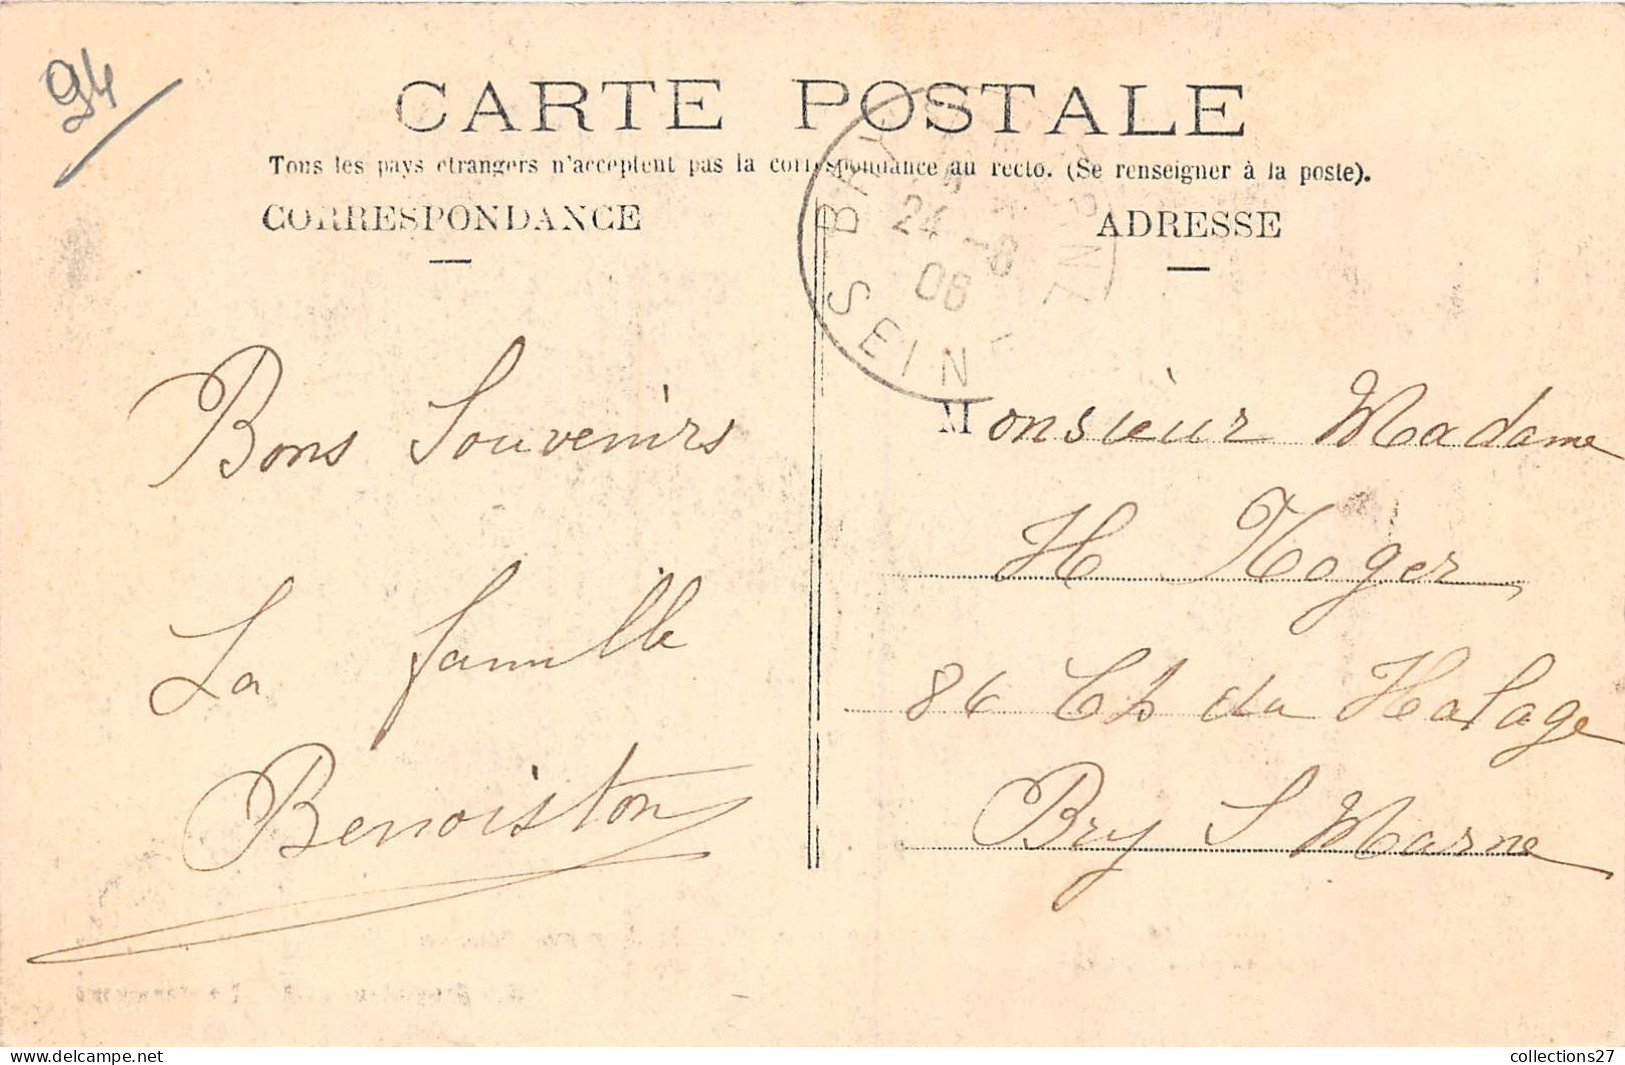 94
CARTE POSTALE
Tous les pays étrangers n'acceptent pas la correspondance au recto. (Se renseigner à la poste).
CORRESPONDANCE
ADRESSE
BRY
24 -8
06
SEINE
Bons Souvenirs
La famille
Benoiston
Monsieur Madame
H Roger
86 Ch du Halage
Bry S Marne
collections27